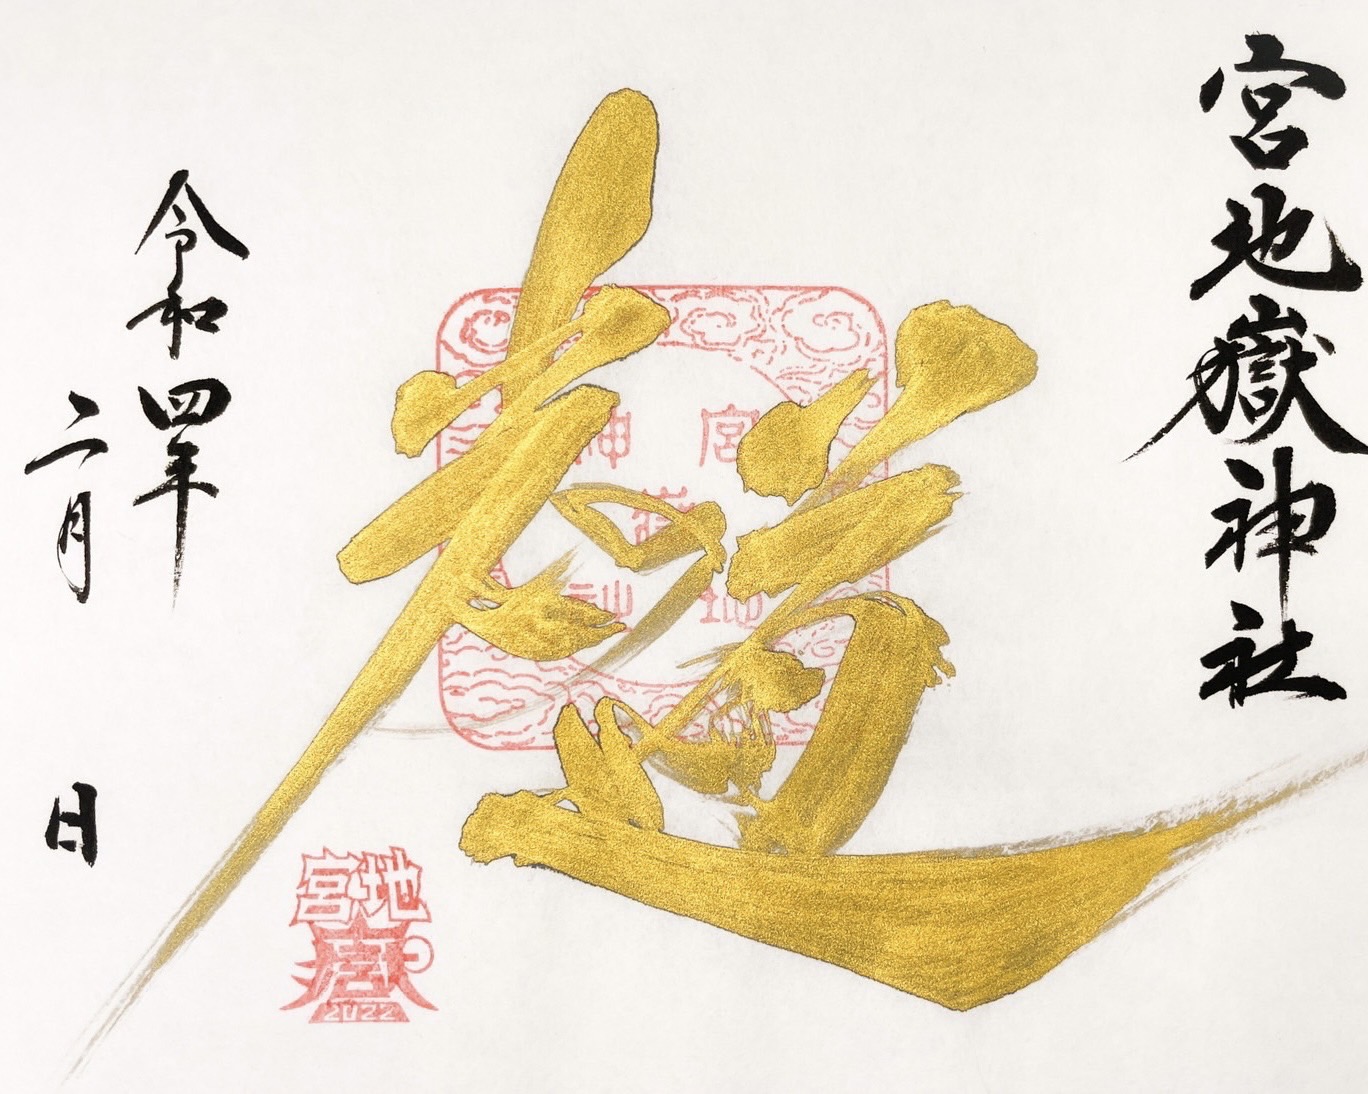 宮地嶽神社
光の道
宮地嶽神社
令和四年
二月 日
宮地
嶽
2022